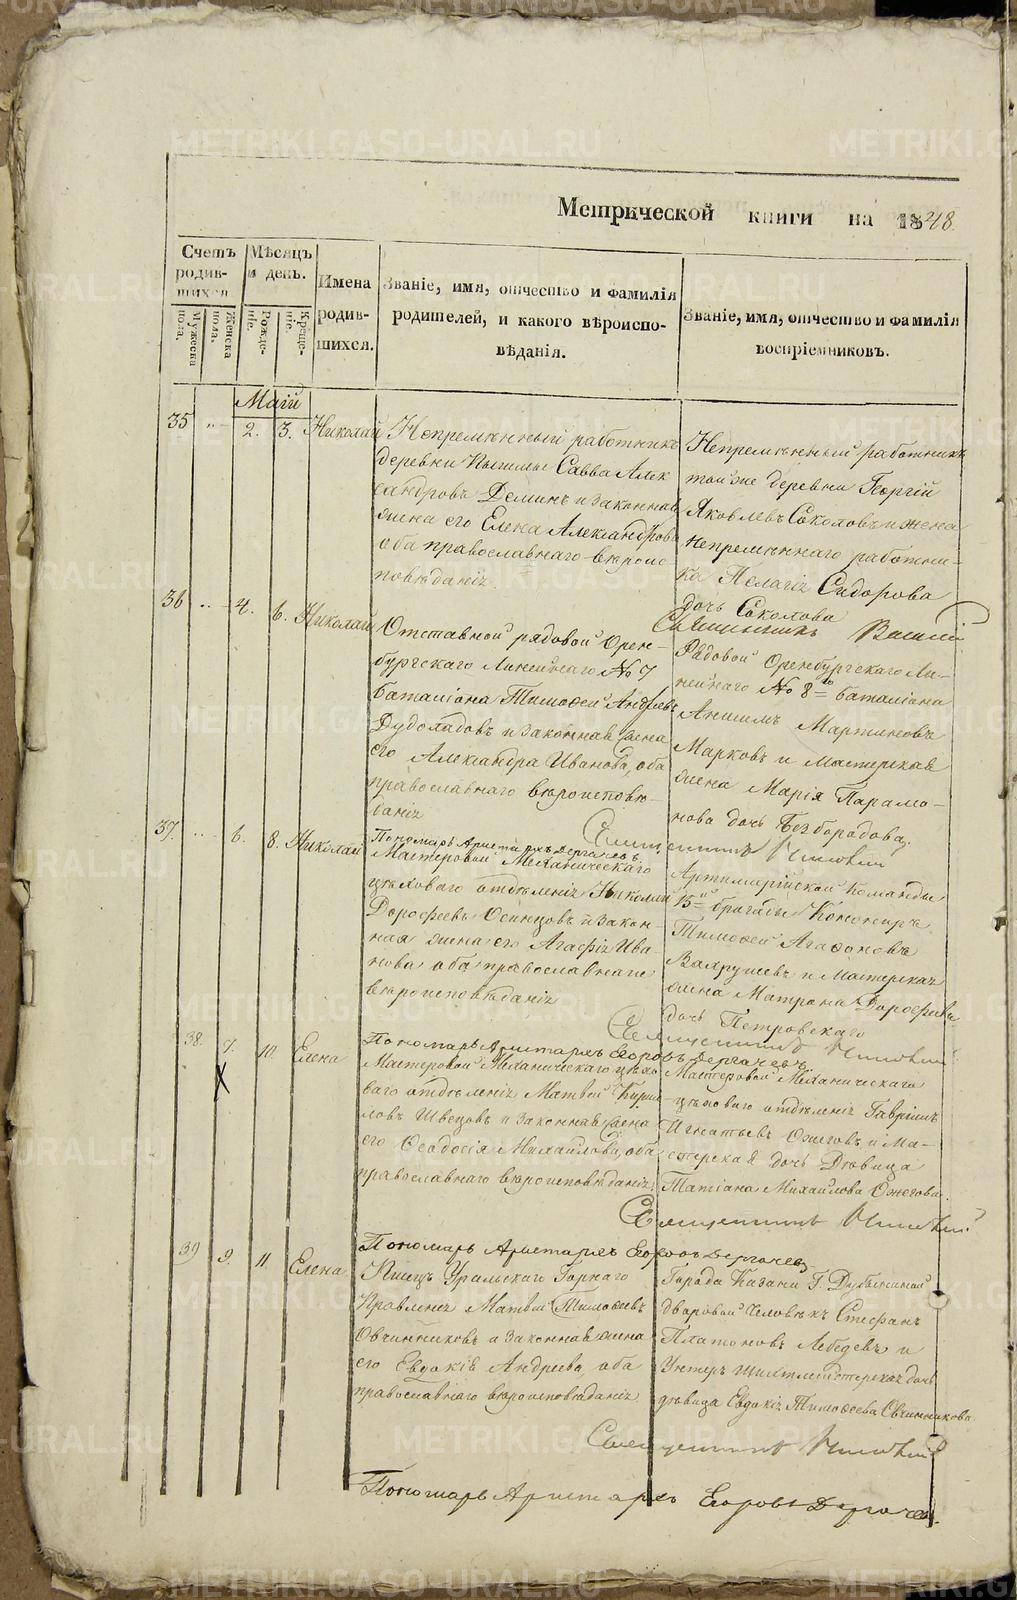 METRIKI.GASO-URAL.RU
Метрической книги на 1848.
Счетъ родив-шихся
Мѣсяцъ и день.
Имена родив-шихся.
Званіе, имя, отчество и фамилія родителей, и какого вѣроиспо-вѣданія.
Званіе, имя, отчество и фамилія воспріемниковъ.
Мужеска пола.
Женска пола.
Рожде-ніе.
Креще-ніе.
Маій
35 " 2. 3. Николай
Непремѣнный работникъ
деревни Пышмы Савва Алек
сандровъ Деминъ и законная
жена его Елена Александрова
оба православнаго вѣроис
повѣданія
Непремѣнный работникъ
той же деревни Георгій
Яковлевъ Соколовъ и жена
непремѣннаго работни-
ка Пелагія Сидорова
дочь Соколова
Священникъ Василій
36 " 4. 6. Николай
Отставной рядовой Орен-
бургскаго Линейнаго № 7
баталіона Тимофей Андреевъ
Дудоладовъ и законная жена
его Александра Иванова, оба
православнаго вѣроисповѣ-
данія
Рядовой Оренбургскаго Ли-
нейнаго № 8го баталіона
Анисимъ Мартиновъ
Марковъ и Мастерская
жена Марія Парамо-
нова дочь Безбородова.
Священникъ
Пономарь Аристархъ Дергачевъ
37. " 6. 8. Николай
Мастеровой Механическаго
цѣховаго отдѣленія Николай
Дорофеевъ Осинцовъ и закон-
ная жена его Агафія Ива-
нова оба православнаго
вѣроисповѣданія
Артиллерійской команды
бригады Канониръ
Тимофей Агафоновъ
Вахрушевъ и Мастерская
жена Матрона Дорофеева
дочь Петровскаго
Священникъ
Пономарь Аристархъ Егоровъ Дергачевъ
38. 7. 10. Елена
Мастеровой Механическаго цѣхо
ваго отдѣленія Матвей Кирил
ловъ Швецовъ и законная жена
его Феодосія Михайлова, оба
православнаго вѣроисповѣданія.
Мастеровой Механическаго
цѣховаго отдѣленія Гавріилъ
Игнатьевъ Ожеговъ и Ма-
стерская дочь Дѣвица
Татіана Михайлова Ожегова.
Священникъ
Пономарь Аристархъ Егоровъ Дергачевъ
39 9. 11. Елена
Писецъ Уральскаго Горнаго
Правленія Матвей Тимофеевъ
Овчинниковъ и законная жена
его Евдокія Андреева, оба
православнаго вѣроисповѣданія
Города Казани Г.
дворовой человѣкъ Стефанъ
Платоновъ Лебедевъ и
Унтеръ Шихтмейстерская дочь
дѣвица Евдокія Тимофеева Овчинникова
Священникъ
Пономарь Аристархъ Егоровъ Дергачевъ.